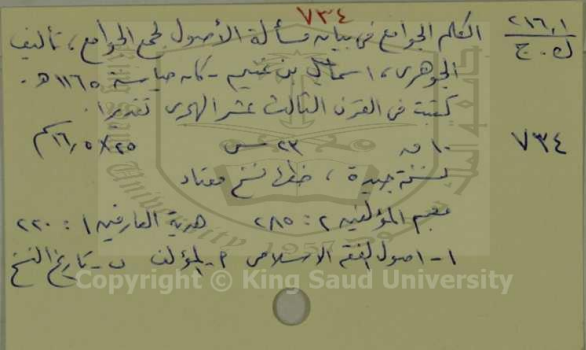 ٧٣٤
٢١٦,١
ك . ج
الكلم الجوامع في بيان مسألة الأصول لجمع الجوامع ، تأليف
الجوهري ، اسماعيل بن غنيم - كان حيا سنة ١١٦٥ هـ .
كتبت في القرن الثالث عشر الهجري تقديرا .
٧٣٤
١٠ ق ٢٣ س ٢٥ × ١٦,٥ سم
نسخة جيدة ، خطها نسخ معتاد
معجم المؤلفين ٢ : ٢٨٥ هدية العارفين ١ : ٢٢٠
١ - اصول الفقه الاسلامي أ - المؤلف ب - تاريخ النسخ
Copyright © King Saud University
1957
University